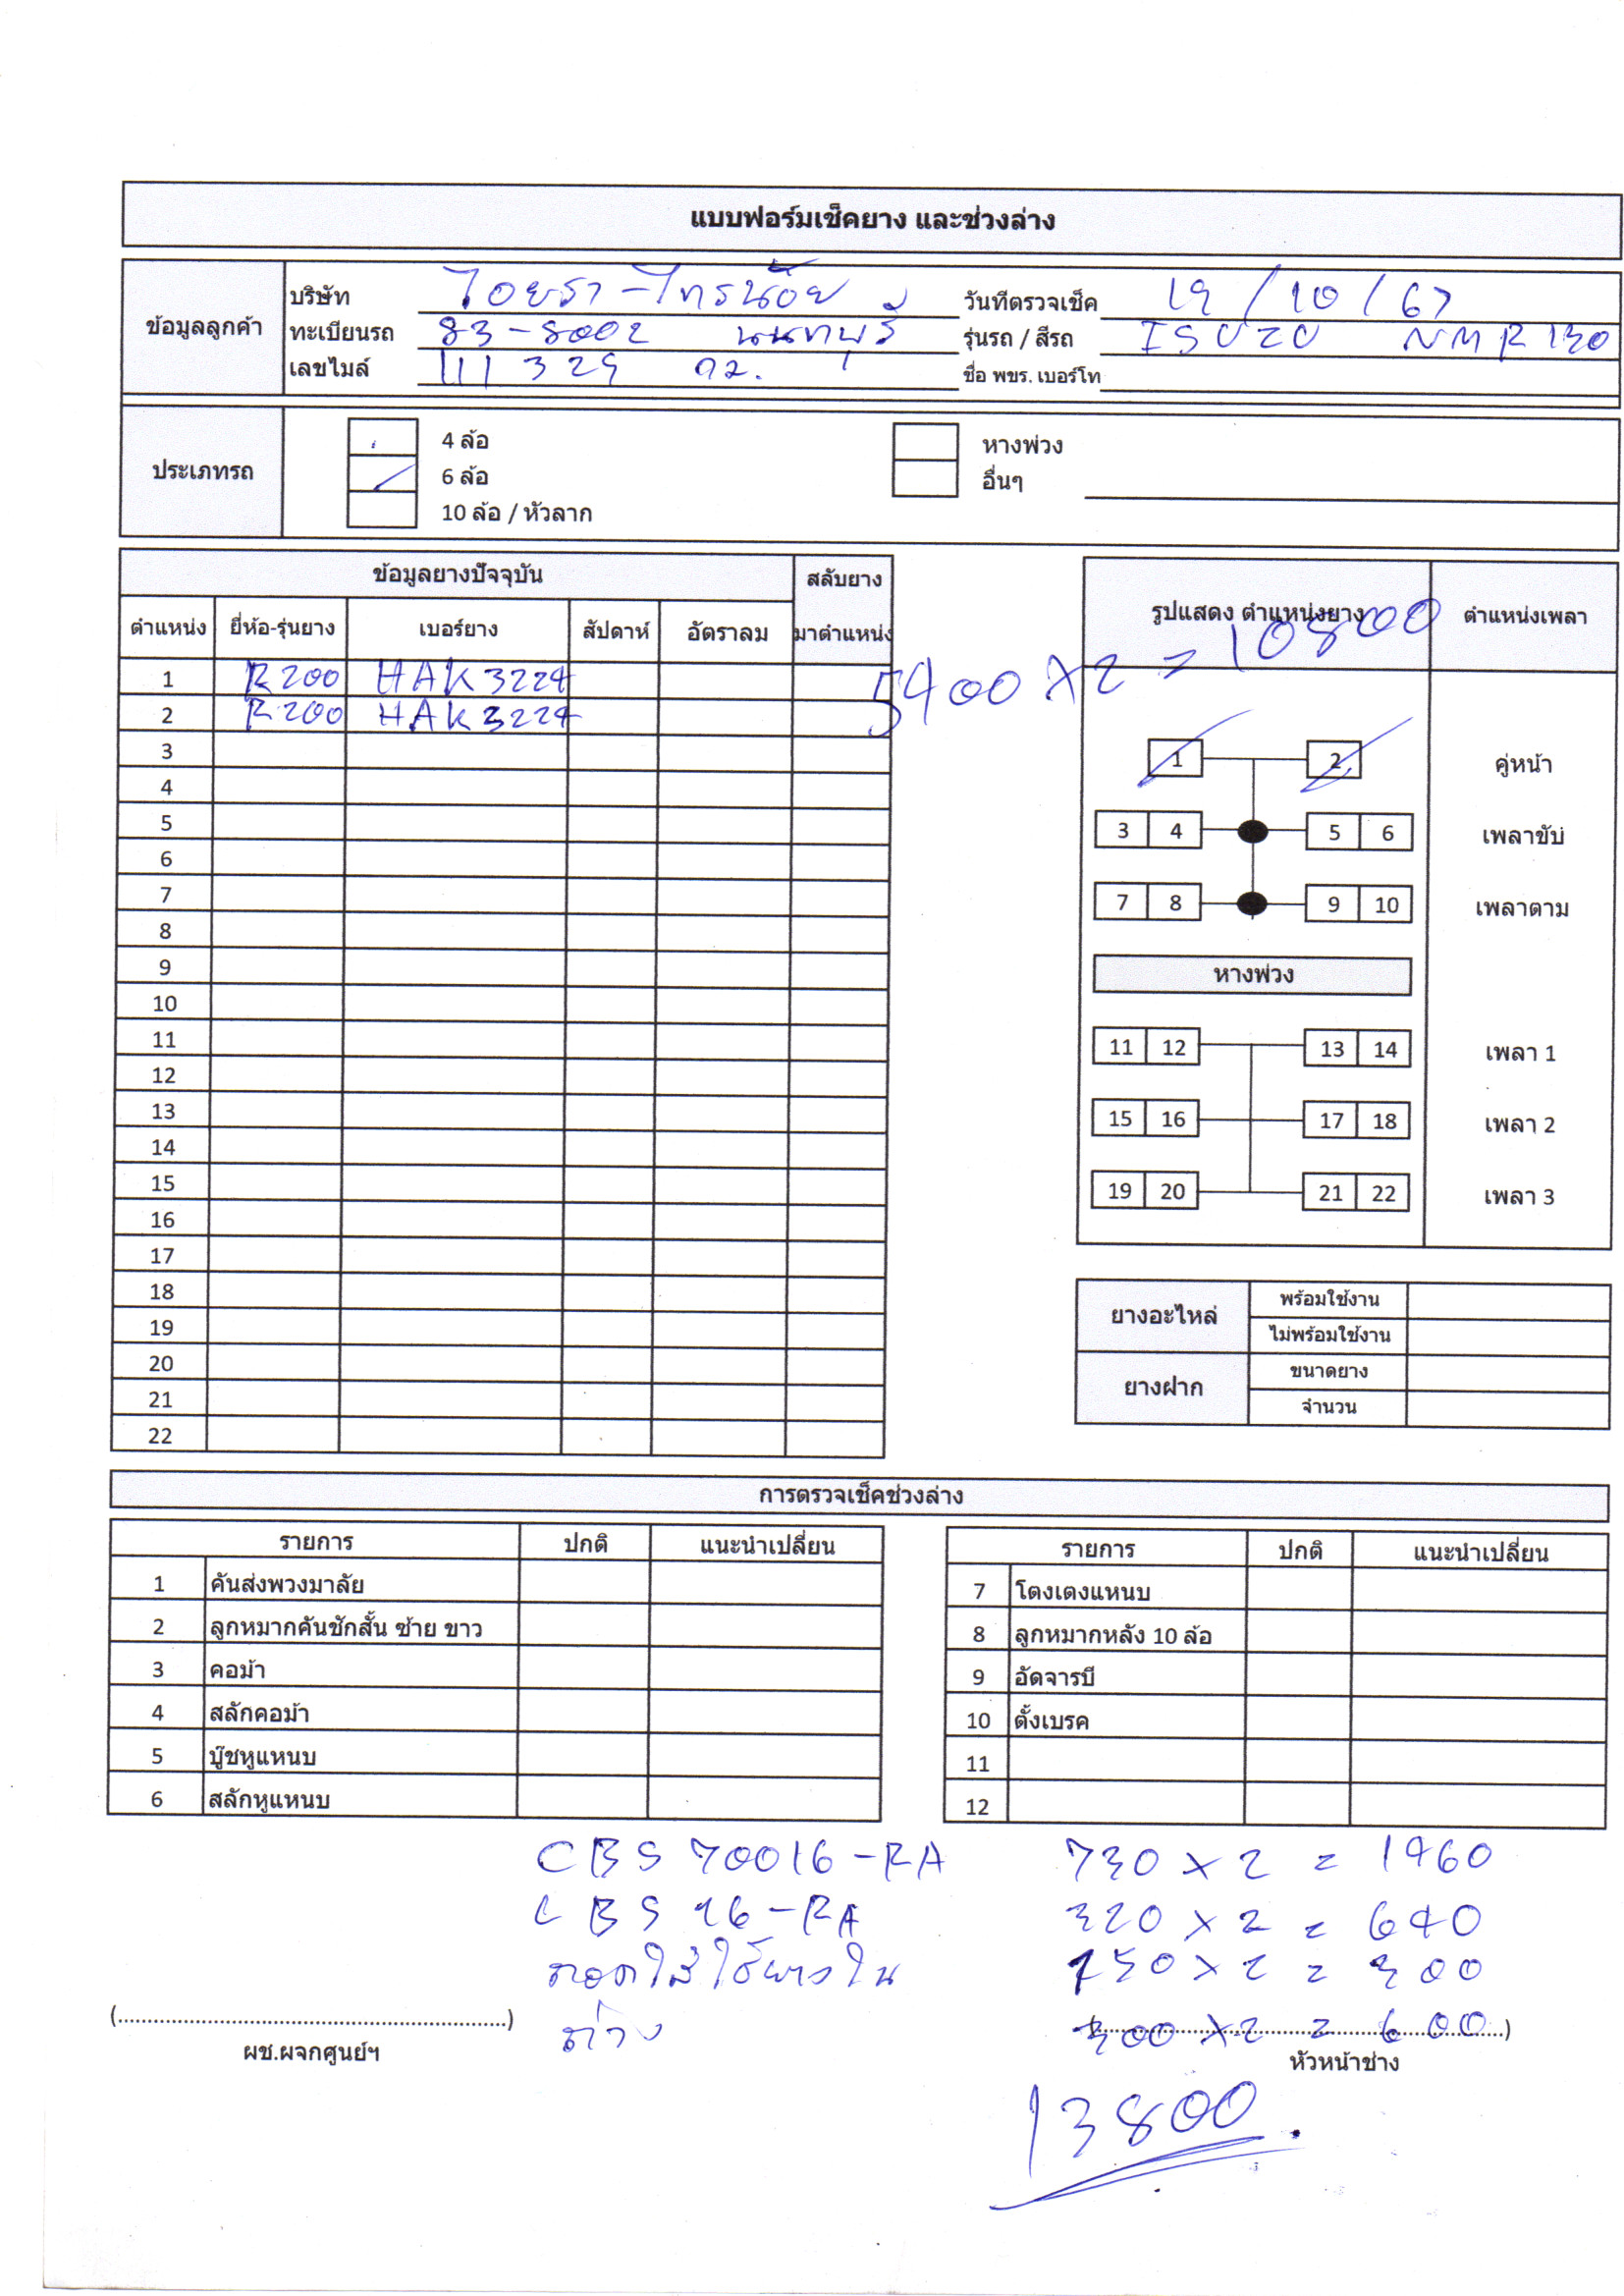 แบบฟอร์มเช็คยาง และช่วงล่าง
ข้อมูลลูกค้า
บริษัท ไอยรา-ไทรน้อย วันที่ตรวจเช็ค 19/10/67
ทะเบียนรถ 83-8002 นนทบุรี รุ่นรถ / สีรถ ISUZU NMR130
เลขไมล์ 111329 กม. ชื่อ พขร. เบอร์โท
ประเภทรถ
4 ล้อ หางพ่วง
6 ล้อ อื่นๆ
10 ล้อ / หัวลาก
ข้อมูลยางปัจจุบัน สลับยาง
ตำแหน่ง ยี่ห้อ-รุ่นยาง เบอร์ยาง สัปดาห์ อัตราลม มาตำแหน่ง
1 R200 HAK3224
2 R200 HAK3224
3
4
5
6
7
8
9
10
11
12
13
14
15
16
17
18
19
20
21
22
5400 x 2 = 10800
รูปแสดง ตำแหน่งยาง ตำแหน่งเพลา
1 2 คู่หน้า
3 4 5 6 เพลาขับ
7 8 9 10 เพลาตาม
หางพ่วง
11 12 13 14 เพลา 1
15 16 17 18 เพลา 2
19 20 21 22 เพลา 3
ยางอะไหล่ พร้อมใช้งาน
ไม่พร้อมใช้งาน
ยางฝาก ขนาดยาง
จำนวน
การตรวจเช็คช่วงล่าง
รายการ ปกติ แนะนำเปลี่ยน
1 คันส่งพวงมาลัย
2 ลูกหมากคันชักสั้น ซ้าย ขาว
3 คอม้า
4 สลักคอม้า
5 บู๊ชหูแหนบ
6 สลักหูแหนบ
รายการ ปกติ แนะนำเปลี่ยน
7 โตงเตงแหนบ
8 ลูกหมากหลัง 10 ล้อ
9 อัดจารบี
10 ตั้งเบรค
11
12
CBS 70016-RA 730 x 2 = 1460
CBS 16-RA 320 x 2 = 640
ถอดใส่ใช้ยางใน 150 x 2 = 300
ถ่วง 300 x 2 = 600
(....................................................................)
ผช.ผจกศูนย์ฯ
หัวหน้าช่าง
13800